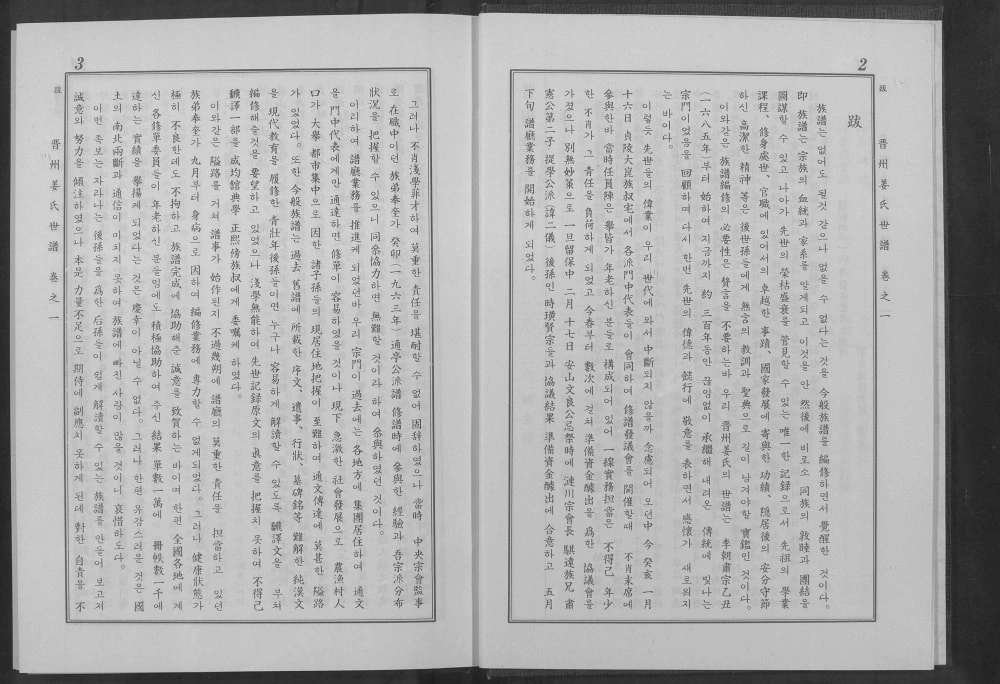 2
跋
晋州姜氏世譜 卷之一
跋
族譜는 없어도 될것 같으나 없을 수 없다는 것을 今般族譜를 編修하면서 覺醒한 것이다。
即 族譜는 宗族의 血統과 家系를 알게되고 이것을 안 然後에 비로소 同族의 敦睦과 團結을
圖謀할 수 있고 나아가 先世의 榮枯盛衰를 管見할 수 있는 唯一한 記録으로서 先祖의 學業
課程、修身處世、官職에 있어서의 卓越한 事蹟、國家發展에 寄與한 功績、隱居後의 安分守節
하신 高潔한 精神 等은 後世孫들에게 無言의 教訓과 聖典으로 길이 남겨야할 寶鑑인 것이다。
이와같은 族譜編修의 必要性은 贅言을 不要하는바 우리 晋州姜氏의 世譜는 李朝肅宗乙丑
(一六八五年)부터 始하여 지금까지 約 三百年동안 끊임없이 承繼해 내려온 傳統에 빛나는
宗門이었음을 回顧하며 다시 한번 先世의 偉德과 懿行에 敬意를 表하면서 感懷가 새로워지
는 바이다。
이렇듯 先世들의 偉業이 우리 世代에 와서 中斷되지 않을까 念慮되어 오던中 今 癸亥 一月
十六日 貞陵大崑族叔宅에서 各派門中代表들이 會同하여 修譜發議會를 開催할때 不肖末席에
參與한바 當時任員陣은 擧皆가 年老하신 분들로 構成되어 있어 一線實務担當은 不得己 年少
한 不肖가 그 責任을 負荷하게 되었고 今春부터 數次에 걸쳐 準備資金醵出을 爲한 協議會를
가졌으나 別無妙策으로 一旦留保中 二月 十七日 安山文良公忌祭時에 漣川宗會長 騏遠族兄 肅
憲公第二子 提學公派(諱二儀)後孫인 時璜賢宗들과 協議結果 準備資金醵出에 合意하고 五月
下旬 譜廳業務를 開始하게 되었다。
3
跋
晋州姜氏世譜 卷之一
그러나 不肖淺學菲才하여 莫重한 責任을 堪耐할 수 없어 固辞하였으나 當時 中央宗會監事
로 在職中이던 族弟奉奎가 癸卯(一九六三年) 通亭公派譜 修譜時에 參與한 經驗과 吾宗派分布
狀況을 把握할 수 있으니 同參協力하면 無難할 것이라 하여 參與하였던 것이다。
이리하여 譜廳業務를 推進케 되었던바 우리 宗門이 過去에는 各地方에 集團居住하여 通文
을 門中代表에게만 通達하면 修單이 容易하였을 것이나 現下 急激한 社會發展으로 農漁村人
口가 大擧 都市集中으로 因한 諸子孫들의 現居住地把握이 至難하여 通文傳達에 莫甚한 隘路
가 있었다。또한 今般族譜는 過去 舊譜에 所載한 序文、遺事、行狀、墓碑銘等 難解한 純漢文
을 現代教育을 履修한 青壯年後孫들이면 누구나 容易하게 解讀할 수 있도록 飜譯文을 부쳐
編修해줄것을 要望하고 있었으나 淺學無能하여 先世記録原文의 眞意를 把握치 못하여 不得己
飜譯一部를 成均館典學 正熙傍族叔에게 委囑케 하였다。
이와같은 隘路를 거쳐 譜事가 始作된지 不過幾朔에 譜廳의 莫重한 責任을 担當하고 있던
族弟奉奎가 九月부터 身病으로 因하여 編修業務에 專力할 수 없게되었다。그러나 健康狀態가
極히 不良한데도 不拘하고 族譜完成에 協助해준 誠意를 致賀하는 바이며 한편 全國各地에 계
신 各修單委員들이 年老하신 분들임에도 積極協助하여 주신 結果 單數一萬에 冊帙數一千에
達하는 實績을 擧揚케 되었다는 것은 慶幸이 아닐 수 없다。그러나 한편 유감스러운 것은 國
土의 南北兩斷과 通信이 미치지 못하여 族譜에 빠진 사람이 많을 것이니 哀惜하도다。
이번 족보는 자라나는 後孫들을 爲한 后孫들이 쉽게 解讀할 수 있는 族譜를 만들어 보고저
誠意와 努力을 傾注하였으나 本是 力量不足으로 期待에 副應치 못하게 된데 對한 自責을 不